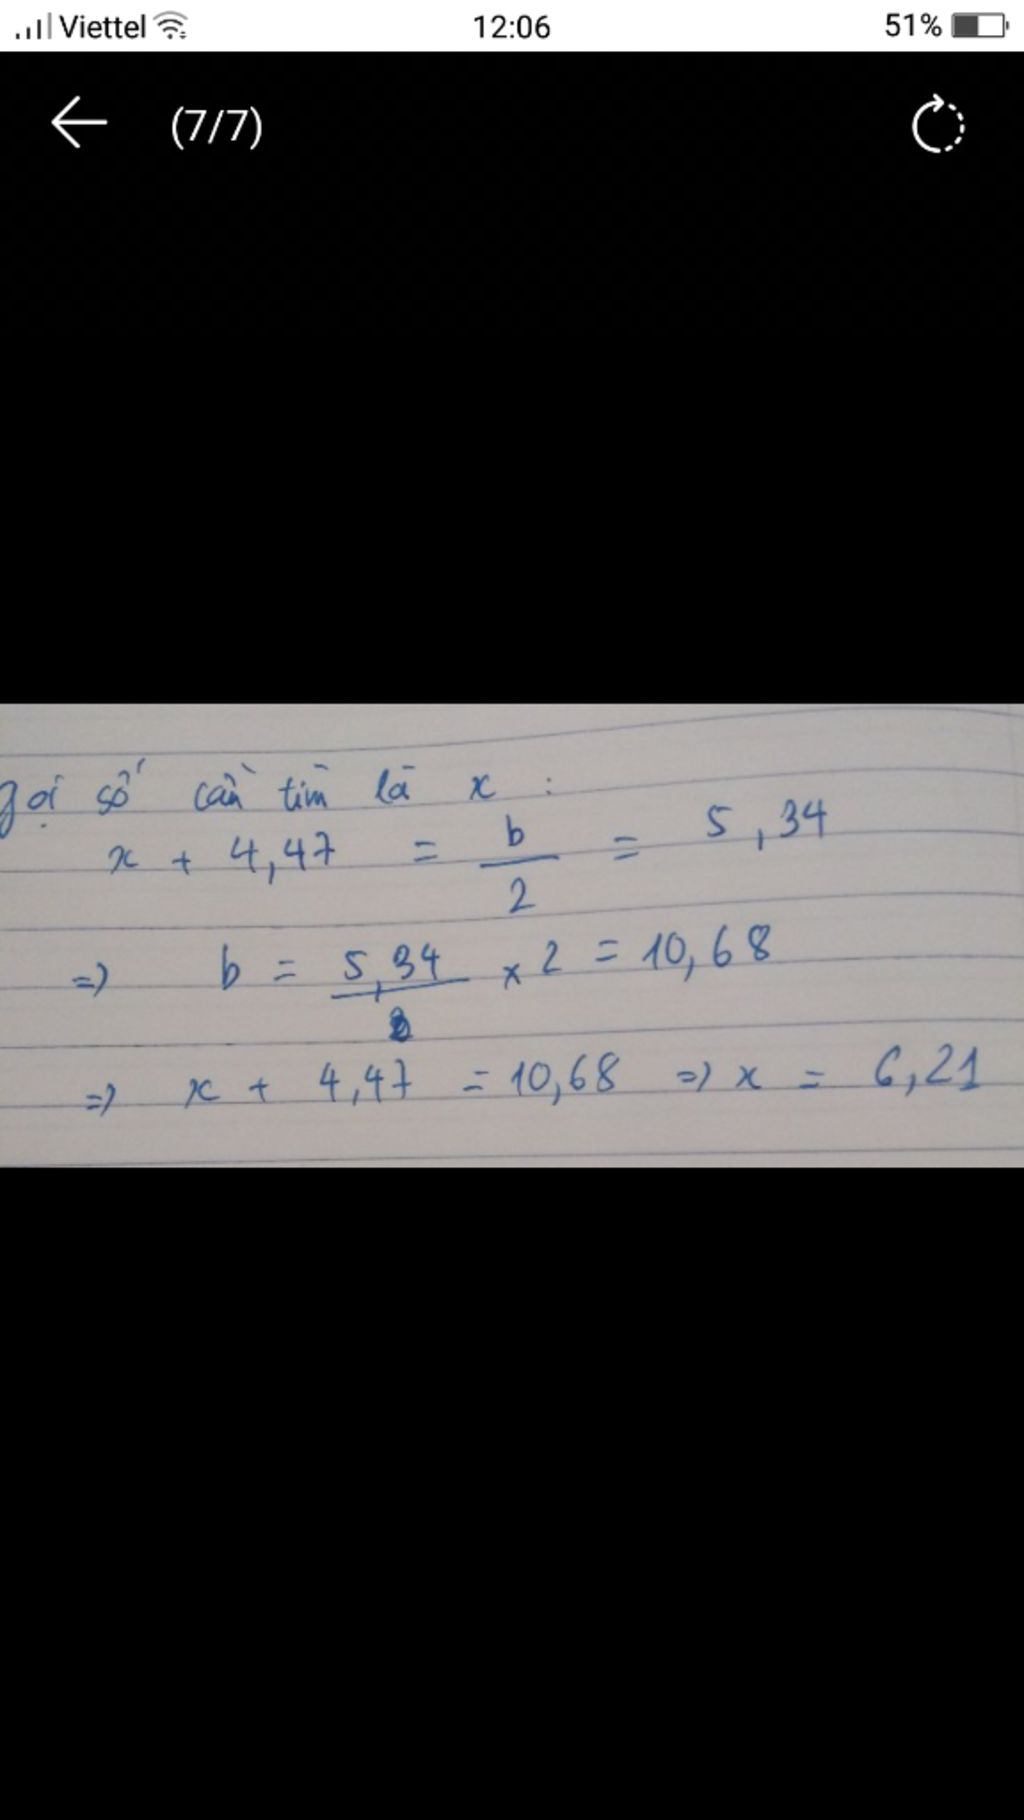 Viettel 12:06 51%
(7/7)
gọi số cần tìm là x :
x + 4,47 = b/2 = 5,34
=> b = 5,34 x 2 = 10,68
=> x + 4,47 = 10,68 => x = 6,21